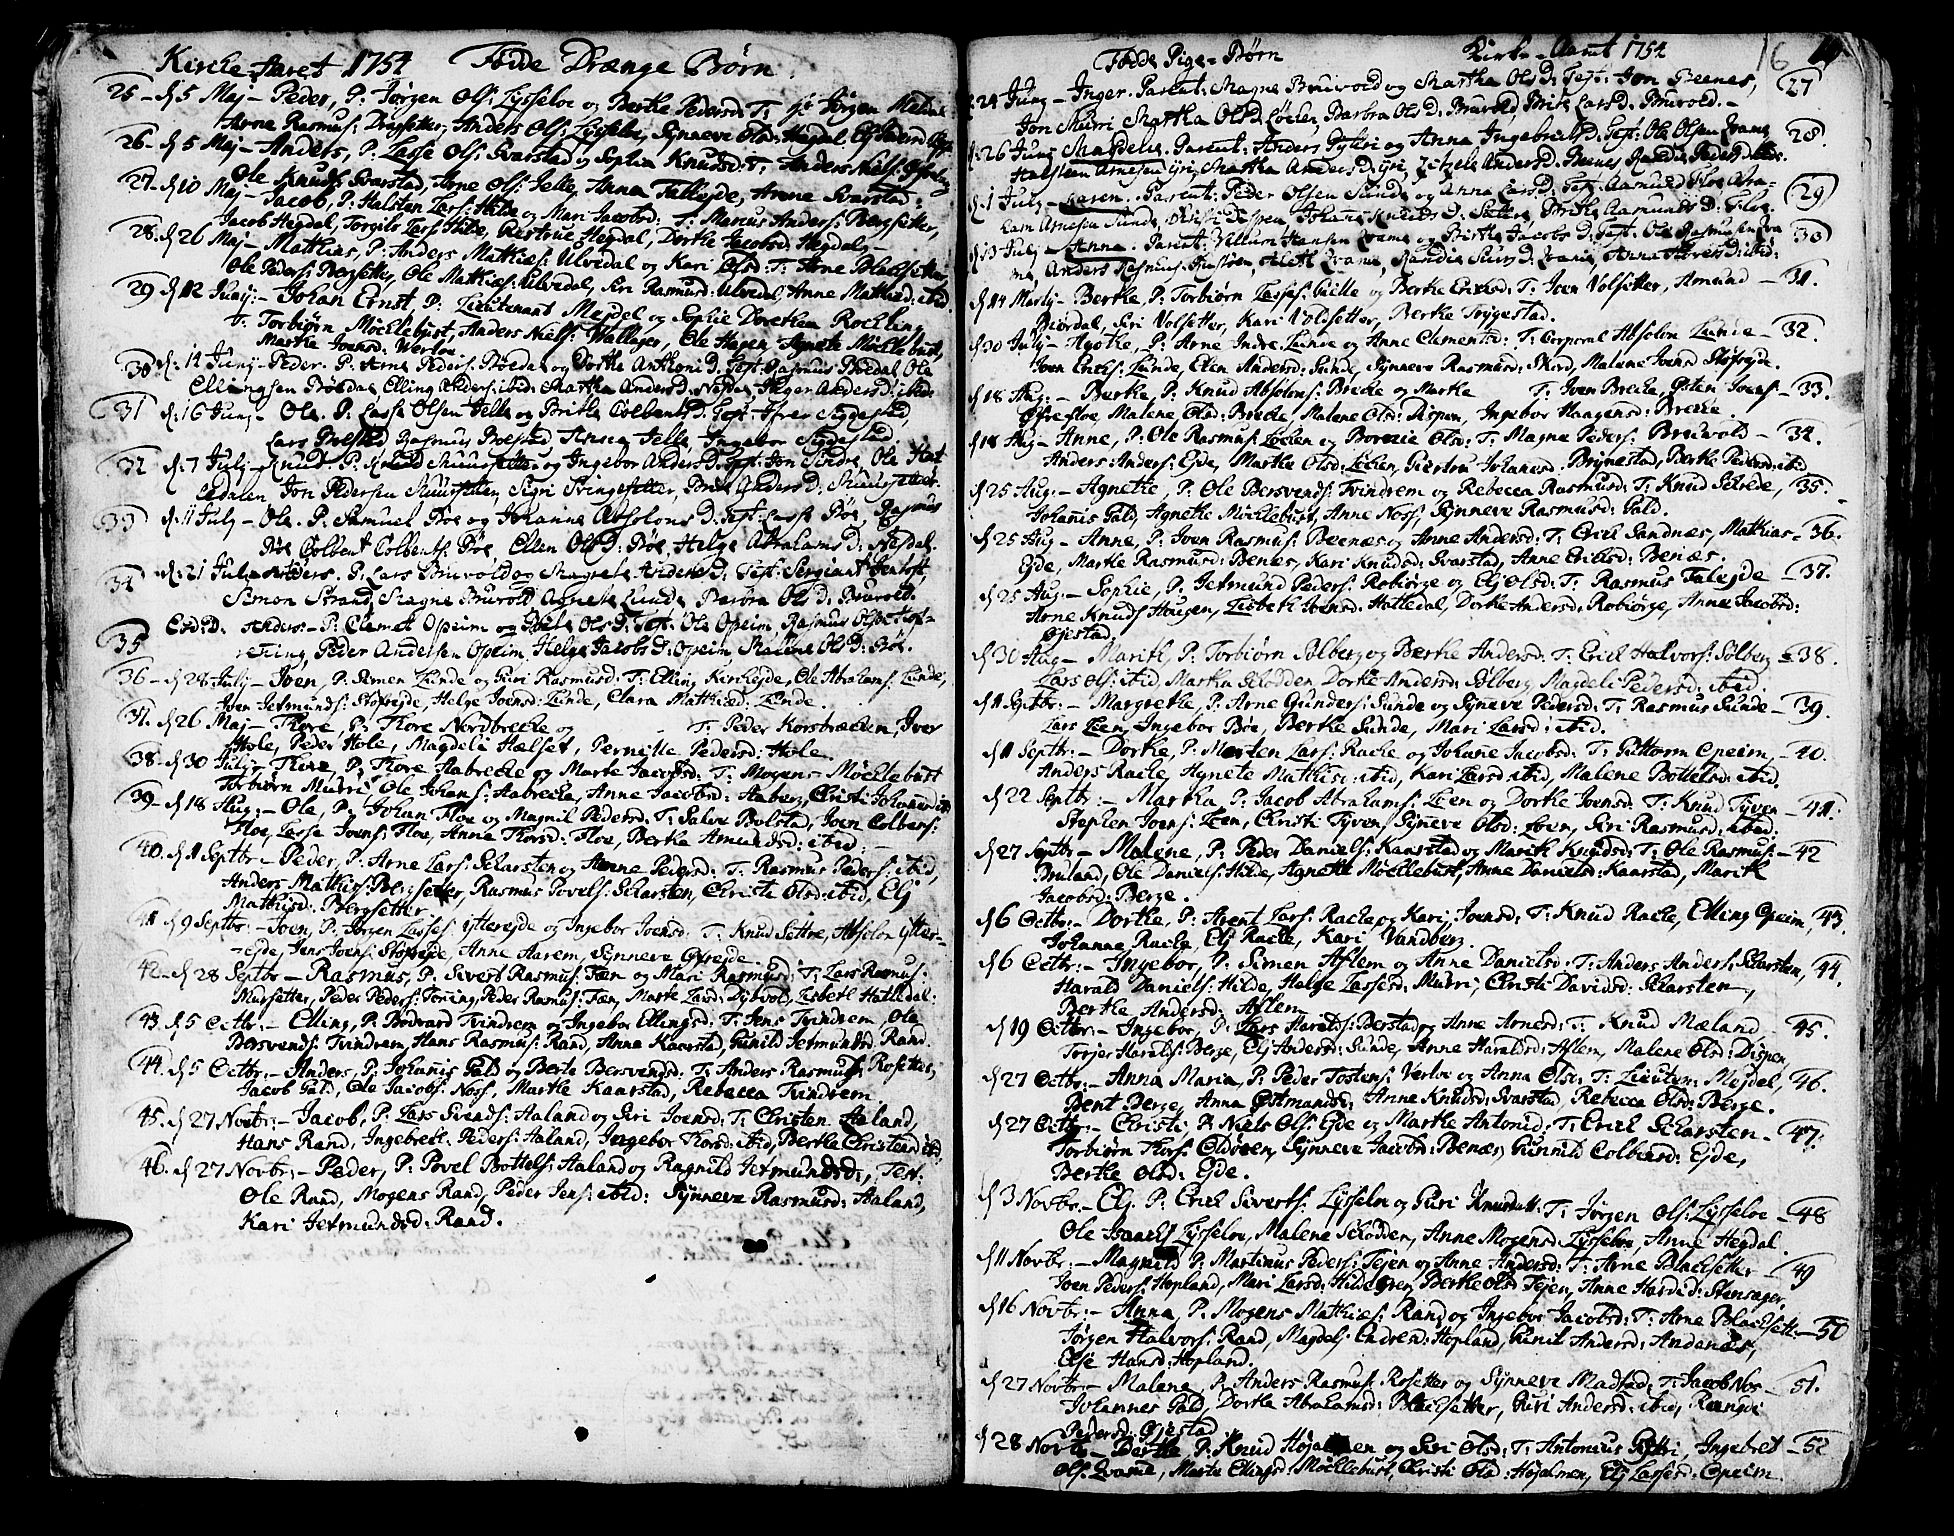 Kirche Aaret 1754 Fødde Drænge Børn.
25 - d 5 Maj - Peder, P: Jørgen Ols: Lysseloe og Berthe Pedersd: T: Jørgen
Arne Rasmus: Anders Ols: Lysseloe, Synneve Olsd: Hegdal,
26 - d 5 Maj - Anders, P: Lasse Ols: Svarstad og Sophia Knudsd: T: Anders Niels:
Ole Knuds: Svarstad, Arne Ols: Jelle, Anna Tallejde, Anne Svarstad:
27. d 10 Maj - Jacob, P: Halsten Lars: Hilde og Mari Jacobsd: T: Marcus Anders: Bergsetter,
Jacob Hegdal, Torgils Lars: Hilde, Hegdal, Dorthe Jacobsd: Hegdal -
28. d 26 Maj - Matthias, P: Anders Mathies: Ulvedal og Kari Olsd: T: Arne Blachsetter
Ole Peders: Bergsetter, Ole Mathies: Ulvedal, Siri Rasmusd: Ulvedal, Anne Mathiesd: ibid
29 d 12 Junj: - Johan Ernst, P: Lieutenant Mejdel og Sophie Dorethea Rochling
T: Torbiørn Møchlebust, Anders Niels: Wallager, Ole Hagen Agnete Møchlebust,
Marthe Joensd: Werloe.
30 d: 14 Junj - Peder. P: Arne Peders: Bødal og Dorthe Anthoni D: Test: Rasmus Bødal, Ole
Ellingsen Bødal, Elling Peders: ibid, Martha Anders D: Nesdal, Inger Anders D: ibid.
31 d: 16 Junj - Ole. P: Lasse Olsen Jelle og Brithe Colbents D: Test: Ifver Sygdestad,
Lars Bolstad Rasmus Bolstad Anna Jelle, Ingebor Sigdestad
32 d: 7 Julj - Knud. P: Knud Muursetter og Ingebor Anders D: Test: Jon Sunde, Ole Hat
ledalen, Jon Pedersen Muursetter, Sigri Svingesetter, Anders D: Muursetter.
33 d: 11 Julj - Ole. P: Samuel Bøe og Johanne Absolons D: Test: Lasse Bøe, Rasmus
Bøe Colbent Colbents: Bøe, Ellen Ols D: Bøe, Helge Abrahams D: Nesdal.
34 d: 21 Julj - Anders. P: Lars Bruvold og Magrete Anders D: Test: Sergiant
Simon Strand, Magne Bruvold, Agnete Lunde Barbra Ols D: Bruvold.
35 Eod: D: Anders: - P: Clemet Opeim og Ols D: Test: Ole Opeim Rasmus
Peder Andersen Opeim, Helge Jacobs D: Opeim, Malene Ols D: Bøe.
36 - d 28 Julj - Joen, P: Simen Lunde og Guri Rasmusd: T: Elling Kirchejde, Ole Abrahams: Lunde,
Joen Jetmunds: Skofrejde, Helge Joensd: Lunde, Clara Mathiesd: Lunde.
37. d 26 Maj - Thore, P: Thore Nordbreche og T: Peder Korsbrechen, Iver
Hole, Peder Hole, Magdeli Hælset, Pernille Pedersd: Hole.
38 - d 30 Julj - Thore, P: Thore Aabreche og Marte Jacobsd: T: Mogens Møchlebust
Torbiørn Muri, Ole Johans: Aabreche, Anne Jacobsd: Aaberg, Christi Johansd: ibid
39, d 18 Aug: - Ole, P: Johan Floe og Magnil Pedersd: T: Salve Bolstad, Joen Colbens:
Floe, Lasse Joens: Floe, Anne Thorsd: Floe, Berthe Amundsd: ibid: -
40. d 11 Septbr - Peder, P: Arne Lars: Skarsten og Anne Pedersd: T: Rasmus Peders: ibid,
Anders Mathis: Bergsetter, Rasmus Povels: Skarsten, Christi Olsd: ibid, Elj
Mathisd: Bergsetter.
41 d 9 Septbr: - Joen, P: Jørgen Lasses: Ytterejde og Ingebor Joensd: T: Knud Settre, Absolon Ytter-
-ejde, Jens Joens: Skofrejde, Anne Aarem, Synneve Øvrejde
42 - d 28 Septbr - Rasmus, P: Sivert Rasmus: Taen og Mari Rasmusd: T: Lars Rasmus:
Mursetter, Peder Peders: Toning, Peder Rasmus: Taen, Marte Larsd: Dybvold, Lisbeth Hatledal:
43. d 5 Octbr: - Elling, P: Bodvard Tvindrem og Ingebor Ellingsd: T: Jens Tvindrem, Ole
Bersvends: Tvindrem, Hans Rasmus: Rand, Anna Kaarstad, Gunild Jetmundsd Rand.
44. d 5 Octbr: - Anders, P: Johanis Gald og Berte Bersvendsd: T: Anders Rasmus: Rosetter,
Jacob Gald, Ole Jacobs: Noss, Marthe Kaarstad, Rebecca Tvindrem.
45. d 27 Novbr: - Jacob, P: Lars Svends: Aaland og Siri Joensd: T: Christen Aaland,
Hans Rand, Ingebreth Peders: Aaland, Ingebor Thorsd: ibid, Berthe Christensd ibid:
46. d 27 Novbr: - Peder, P: Povel Bottels: Aaland og Ragnild Jetmundsd:, Test:
Ole Rand, Mogens Rand, Peder Jens: ibid: Synneve Rasmusd: Aaland,
Kari Jetmundsd: Rand.
Fødde Pige-Børn Kirke-Aaret 1754 16
d 24 Junj - Inger. Parent: Magne Bruvold og Martha Ols D: Test: Jon Beenes, 27
Jon Muri Martha Ols D: Løclen, Barbra Ols D: Bruvold, Brite Lars D: Bruvold. -
d: 26 Junj Magdele. Parent: Anders Gytri og Anna Ingebrets D: Test: Ole Olsen Qvame 28.
Halsteen Arnesen Gyri, Martha Anders D: Gyri, Anders D: Beenes Randi Peders D:
d: 1 Julj - Karen. Parent: Peder Olsen Sunde og Anna Lars D: Test: Rasmus Floe Abra- 29
ham Arnesen Sunde,
d 13 Julj - Anna. Parent: Villum Hansen Qvame og Birthe Jacobs D: Test: Ole Rasmusen Qva 30
me, Anders Rasmus: Aleth Qvame, Randie Qvame, Anna ibid:
d 14 Martj - Berthe, P: Torbiørn Lasses: Guille og Berthe Ericsd: T: Joen Volsetter, Amund - 31.
Diørdal, Siri Volsetter, Kari Volsetter, Berthe Trygestad.
d 30 Julj - Agothe, P: Arne Indre Lunde og Anne Clementsd: T: Corporal Absolon Lunde - 32.
Joen Erichs: Lunde, Elen Andersd: Sunde, Synneve Rasmusd: Skred, Malene Joensd Skofrejde.
d 18 Aug: - Berthe, P: Knud Absolons: Breche og Marthe T: Joen Breche, Østen Joens: - 33.
Øfrefloe, Malene Olsd: Breche Malene Olsd: Dispen, Ingebor Haagensd: Breche.
d 18 Aug - Anne, P: Ole Rasmus: Løclen og Borenie Olsd: T: Magne Peders: Bruvold - 34.
Anders Anders: Ejde, Marthe Olsd: Løclen, Giertru Johansd: Brynestad, Berthe Pedersd: ibid
d 25 Aug: - Agnethe, P: Ole Bersvends: Tvindrem og Rebecca Rasmusd: T: Knud Skrede, 35.
Johanis Gald, Agnethe Møchlebust, Anne Noss, Synneve Rasmusd: Gald.
d 25 Aug - Anne, P: Joen Rasmus: Beenæs og Anne Andersd: T: Erich Sandnes, Mathias - 36.
Ejde, Marthe Rasmusd: Benes, Kari Knudsd: Svarstad, Anne Erichsd: Benæs.
d 25 Aug: - Sophie, P: Jetmund Peders: Robiørge og Elj Olsd: T: Rasmus Talejde - 37.
Arne Knuds Hougen, Lisbeth Joensd: Hatledal, Dorthe Andersd: Robiørge, Anne Jacobsd:
Giestad.
d 30 Aug - Marith, P: Torbiørn Solberg og Berthe Andersd: T: Erich Halvors: Solberg - 38.
Lars Ols: ibid, Martha Klodden, Dorthe Andersd: Solberg Magdeli Pedersd: ibid.
d 11 Septbr: - Margrethe, P: Arne Gunders: Sunde og Syneve Pedersd: T: Rasmus Sunde - 39.
Lars Leen, Ingebor Bøe, Berthe Sunde, Mari Larsd: ibid.
d 11 Septbr: - Dorthe, P: Morten Lars: Rache og Johane Jacobsd: T: Guttorm Opeim, - 40.
Anders Rache, Agnete Mathisd: ibid, Kari Larsd: ibid, Malene Bottelsd: ibid.
d 22 Septbr: - Martha, P: Jacob Abrahams: Leen og Dorthe Joensd: T: Knud Tyven - 41.
Stephen Joens: Leen, Christi Tyven, Synneve Olsd: Loen, Siri Rasmusd: ibid:
d 27 Septbr - Malene, P: Peder Daniels: Kaarstad og Marith Knudsd: T: Ole Rasmus: - 42
Bruland, Ole Daniels: Hilde, Agnethe Møchlebust, Anne Danielsd: Kaarstad, Marith
Jacobsd: Berge.
d 6 Octbr: - Dorthe, P: Arent Lars: Rache og Kari Joensd: T: Knud Rache, Elling Opeim, 43.
Johanne Rache, Elj Rache, Kari Vandberg.
d 6 Octbr: - Ingebor, P: Simen Aflem og Anne Danielsd: T: Anders Anders: Skarsten, 44.
Harald Daniels: Hilde, Helge Lassesd: Muri, Christi Davidsd: Skarsten,
Berthe Andersd: Aflem.
d 19 Octbr: - Ingebor, P: Lars Haralds: Berstad og Anne Arnesd: T: Knud Mæland - 45.
Torjer Haralds: Berge, Elj Andersd: Sunde, Anne Haraldsd: Aflem, Malene Olsd: Dispen,
d 27 Octbr: - Anna Maria, P: Peder Tostens: Verloe og Anna Olsd: T: Lieuten: Mejdel, 46.
Bent Berge, Anna Gutmundsd: Anne Knudsd: Svarstad, Rebecca Olsd: Berge.
d 27 Octbr: - Christi P: Niels Ols: Ejde og Marthe Antonisd: T: Erich Skarsten - 47.
Torbiørn Thors: Oldøen, Synneve Jacobsd: Benæs, Gunnild Colbensd: Ejde,
Berthe Olsd: Ejde.
d 3 Novbr: - Elj. P: Erich Siverts: Lysseloe og Guri Knudsd: T: Jørgen Ols: Lysseloe - 48
Ole Isaachs: Lysseloe, Malene Klodden, Anne Mogensd: Lysseloe, Anne Hegdal.
d 11 Novbr: - Magnild P: Martinus Peders: Tejen og Anne Andersd: T: Arne Blachsetter - 49
Joen Peders: Hopland, Mari Larsd: Hildegren, Berthe Olsd Tejen, Anne Haredsd: Stensager,
d 16 Novbr: - Anna, P: Mogens Mathies: Rand og Ingebor Jacobsd: T: Arne Blachsett: - 50
Jørgen Halvors: Rand, Magdeli Endresd: Hopland, Gunil Andersd: Andenæs,
Else Hansd: Hopland.
d 27 Novbr: - Malene, P: Anders Rasmus: Rosetter og Synneve Madsdd: T: Jacob Nos - 51.
Johannes Gald, Dorthe Abrahamsd: Blachsetter, Guri Andersd: ibid, Rangdi
Pedersd: Giestad
d 28 Novbr - Berthe P: Knud Højalmen og Siri Olsd: T: Antonius Gyttri, Ingebret - 52
Ols: Qvame, Marte Ellingsd: Møchlebust, Christi Olsd: Højalmen, Elj Lassesd: Opeim.